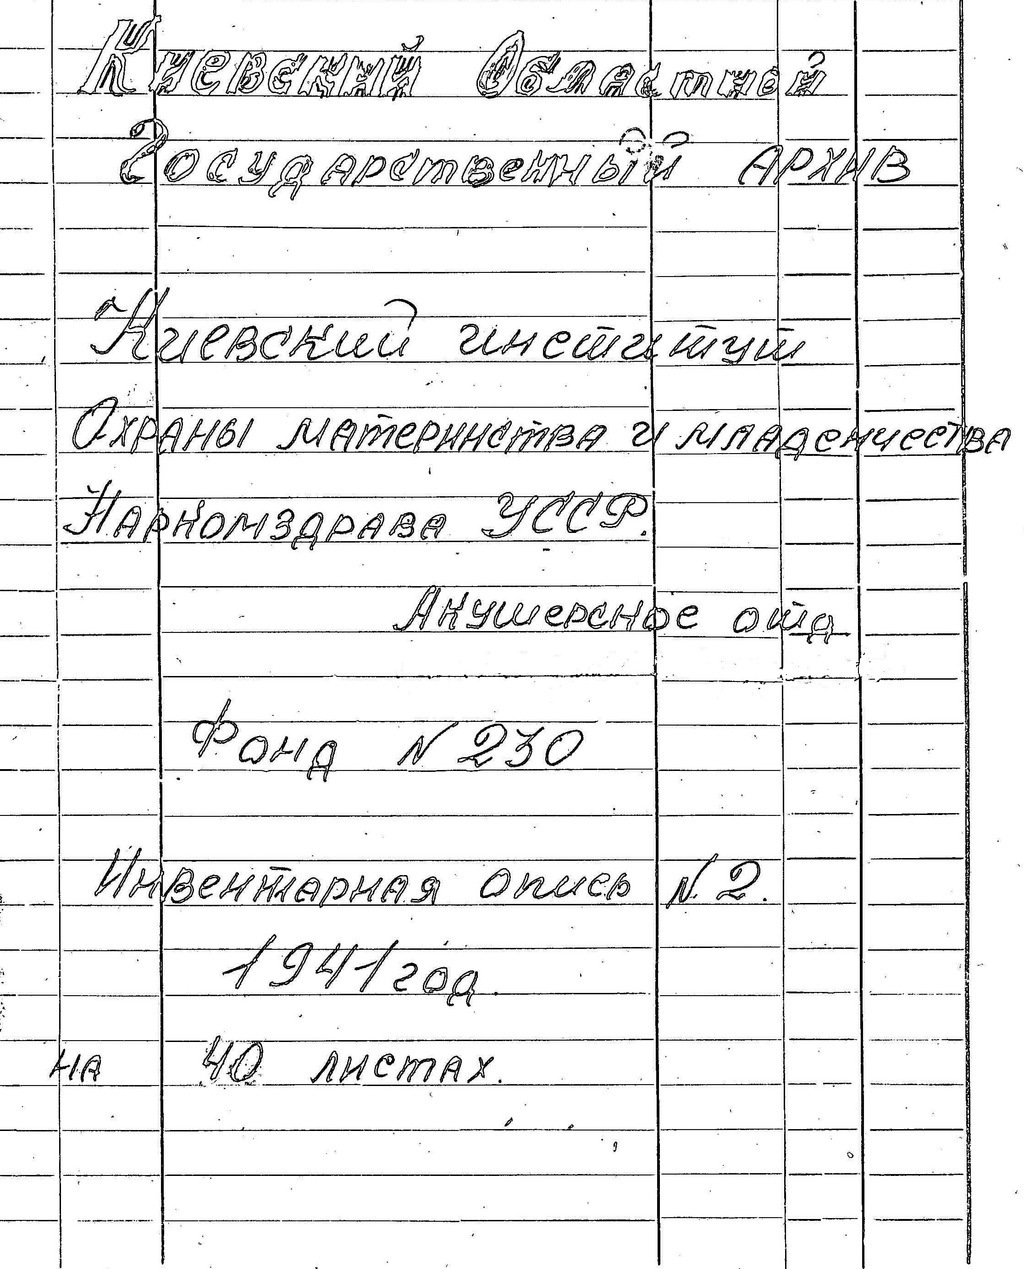 Киевский Областной
Государственный АРХИВ
Киевский институт
Охраны материнства и младенчества
Наркомздрава УССР.
Акушерское отд
Фонд N 230
Инвентарная опись N. 2.
1941 год.
на 40 листах.